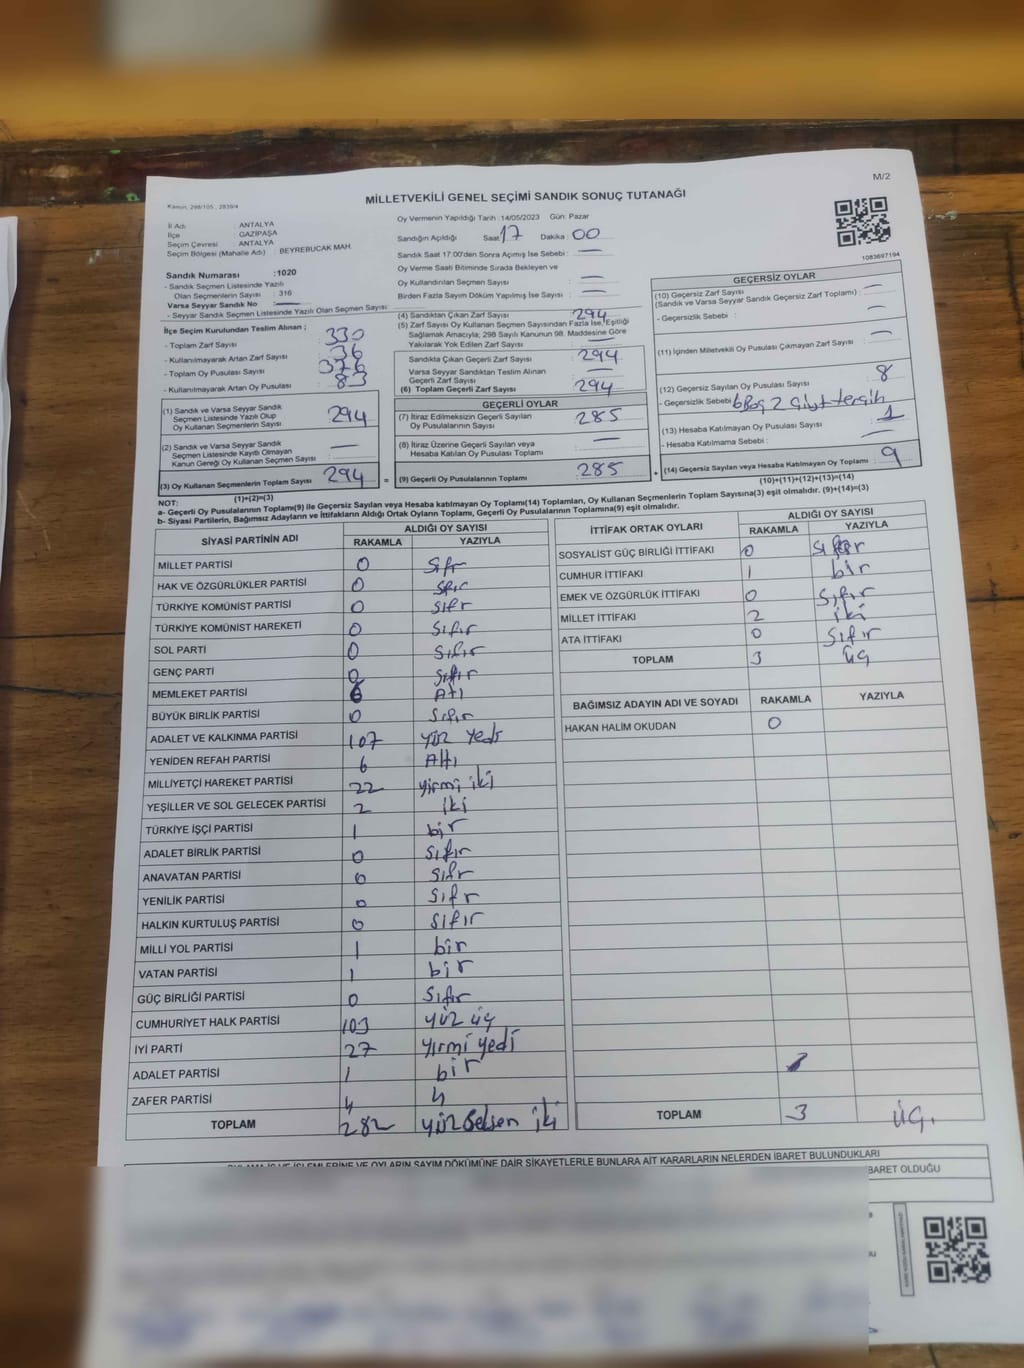 M/2
MİLLETVEKİLİ GENEL SEÇİMİ SANDIK SONUÇ TUTANAĞI
Kanun, 298/105, 2839/4
İl Adı : ANTALYA
İlçe : GAZİPAŞA
Seçim Çevresi : ANTALYA
Seçim Bölgesi (Mahalle Adı) : BEYREBUCAK MAH.
Sandık Numarası :1020
- Sandık Seçmen Listesinde Yazılı
Olan Seçmenlerin Sayısı : 316
Varsa Seyyar Sandık No :
- Seyyar Sandık Seçmen Listesinde Yazılı Olan Seçmen Sayısı:
İlçe Seçim Kurulundan Teslim Alınan ;
- Toplam Zarf Sayısı : 330
- Kullanılmayarak Artan Zarf Sayısı : 36
- Toplam Oy Pusulası Sayısı : 376
- Kullanılmayarak Artan Oy Pusulası : 83
(1) Sandık ve Varsa Seyyar Sandık
Seçmen Listesinde Yazılı Olup
Oy Kullanan Seçmenlerin Sayısı : 294
(2) Sandık ve Varsa Seyyar Sandık
Seçmen Listesinde Kayıtlı Olmayan
Kanun Gereği Oy Kullanan Seçmen Sayısı : —
(3) Oy Kullanan Seçmenlerin Toplam Sayısı : 294
(1)+(2)=(3)
Oy Vermenin Yapıldığı Tarih :14/05/2023 Gün: Pazar
Sandığın Açıldığı Saat: 17 Dakika : 00
Sandık Saat 17:00'den Sonra Açımış İse Sebebi : —
Oy Verme Saati Bitiminde Sırada Bekleyen ve
Oy Kullandırılan Seçmen Sayısı : —
Birden Fazla Sayım Döküm Yapılmış İse Sayısı : —
(4) Sandıktan Çıkan Zarf Sayısı : 294
(5) Zarf Sayısı Oy Kullanan Seçmen Sayısından Fazla İse, Eşitliği
Sağlamak Amacıyla; 298 Sayılı Kanunun 98. Maddesine Göre
Yakılarak Yok Edilen Zarf Sayısı : —
Sandıkta Çıkan Geçerli Zarf Sayısı : 294
Varsa Seyyar Sandıktan Teslim Alınan
Geçerli Zarf Sayısı : —
(6) Toplam Geçerli Zarf Sayısı : 294
GEÇERLİ OYLAR
(7) İtiraz Edilmeksizin Geçerli Sayılan
Oy Pusulalarının Sayısı : 285
(8) İtiraz Üzerine Geçerli Sayılan veya
Hesaba Katılan Oy Pusulası Toplamı : —
(9) Geçerli Oy Pusulalarının Toplamı : 285
1083697194
GEÇERSİZ OYLAR
(10) Geçersiz Zarf Sayısı
(Sandık ve Varsa Seyyar Sandık Geçersiz Zarf Toplamı) : —
- Geçersizlik Sebebi : —
(11) İçinden Milletvekili Oy Pusulası Çıkmayan Zarf Sayısı : —
(12) Geçersiz Sayılan Oy Pusulası Sayısı : 8
- Geçersizlik Sebebi : 6 Boş 2 çift tercih
(13) Hesaba Katılmayan Oy Pusulası Sayısı : 1
- Hesaba Katılmama Sebebi : —
(14) Geçersiz Sayılan veya Hesaba Katılmayan Oy Toplamı : 9
(10)+(11)+(12)+(13)=(14)
NOT:
a- Geçerli Oy Pusulalarının Toplamı(9) ile Geçersiz Sayılan veya Hesaba katılmayan Oy Toplamı(14) Toplamları, Oy Kullanan Seçmenlerin Toplam Sayısına(3) eşit olmalıdır. (9)+(14)=(3)
b- Siyasi Partilerin, Bağımsız Adayların ve İttifakların Aldığı Ortak Oyların Toplamı, Geçerli Oy Pusulalarının Toplamına(9) eşit olmalıdır.
SİYASİ PARTİNİN ADI ALDIĞI OY SAYISI
RAKAMLA YAZIYLA
MİLLET PARTİSİ 0 Sıfr
HAK VE ÖZGÜRLÜKLER PARTİSİ 0 Sfır
TÜRKİYE KOMÜNİST PARTİSİ 0 sıfr
TÜRKİYE KOMÜNİST HAREKETİ 0 Sıfır
SOL PARTİ 0 Sıfır
GENÇ PARTİ 0 Sıfır
MEMLEKET PARTİSİ 6 Altı
BÜYÜK BİRLİK PARTİSİ 0 Sıfır
ADALET VE KALKINMA PARTİSİ 107 yüz yedi
YENİDEN REFAH PARTİSİ 6 Altı
MİLLİYETÇİ HAREKET PARTİSİ 22 yirmi iki
YEŞİLLER VE SOL GELECEK PARTİSİ 2 iki
TÜRKİYE İŞÇİ PARTİSİ 1 bir
ADALET BİRLİK PARTİSİ 0 Sıfır
ANAVATAN PARTİSİ 0 Sıfr
YENİLİK PARTİSİ 0 Sıfr
HALKIN KURTULUŞ PARTİSİ 0 Sıfır
MİLLİ YOL PARTİSİ 1 bir
VATAN PARTİSİ 1 bir
GÜÇ BİRLİĞİ PARTİSİ 0 Sıfır
CUMHURİYET HALK PARTİSİ 103 yüz üç
İYİ PARTİ 27 yirmi yedi
ADALET PARTİSİ 1 bir
ZAFER PARTİSİ 4 4
TOPLAM 282 yüz seksen iki
İTTİFAK ORTAK OYLARI ALDIĞI OY SAYISI
RAKAMLA YAZIYLA
SOSYALİST GÜÇ BİRLİĞİ İTTİFAKI 0 sıfır
CUMHUR İTTİFAKI 1 bir
EMEK VE ÖZGÜRLÜK İTTİFAKI 0 Sıfır
MİLLET İTTİFAKI 2 iki
ATA İTTİFAKI 0 Sıfır
TOPLAM 3 üç
BAĞIMSIZ ADAYIN ADI VE SOYADI RAKAMLA YAZIYLA
HAKAN HALİM OKUDAN 0
TOPLAM 3 üç.
OYLAMA İŞ VE İŞLEMLERİNE VE OYLARIN SAYIM DÖKÜMÜNE DAİR ŞİKAYETLERLE BUNLARA AİT KARARLARIN NELERDEN İBARET BULUNDUKLARI
BARET OLDUĞU